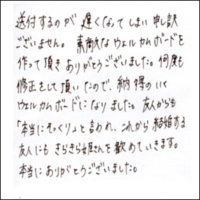 送付するのが遅くなってしまい申し訳
ございません。素敵なウェルカムボードを
作って頂きありがとうございました。何度も
修正をして頂いたので、納得のいく
ウェルカムボードになりました。友人からも
「本当にそっくり」と言われ、これから結婚する
友人にもきらきら堂さんを勧めていきます。
本当にありがとうございました。